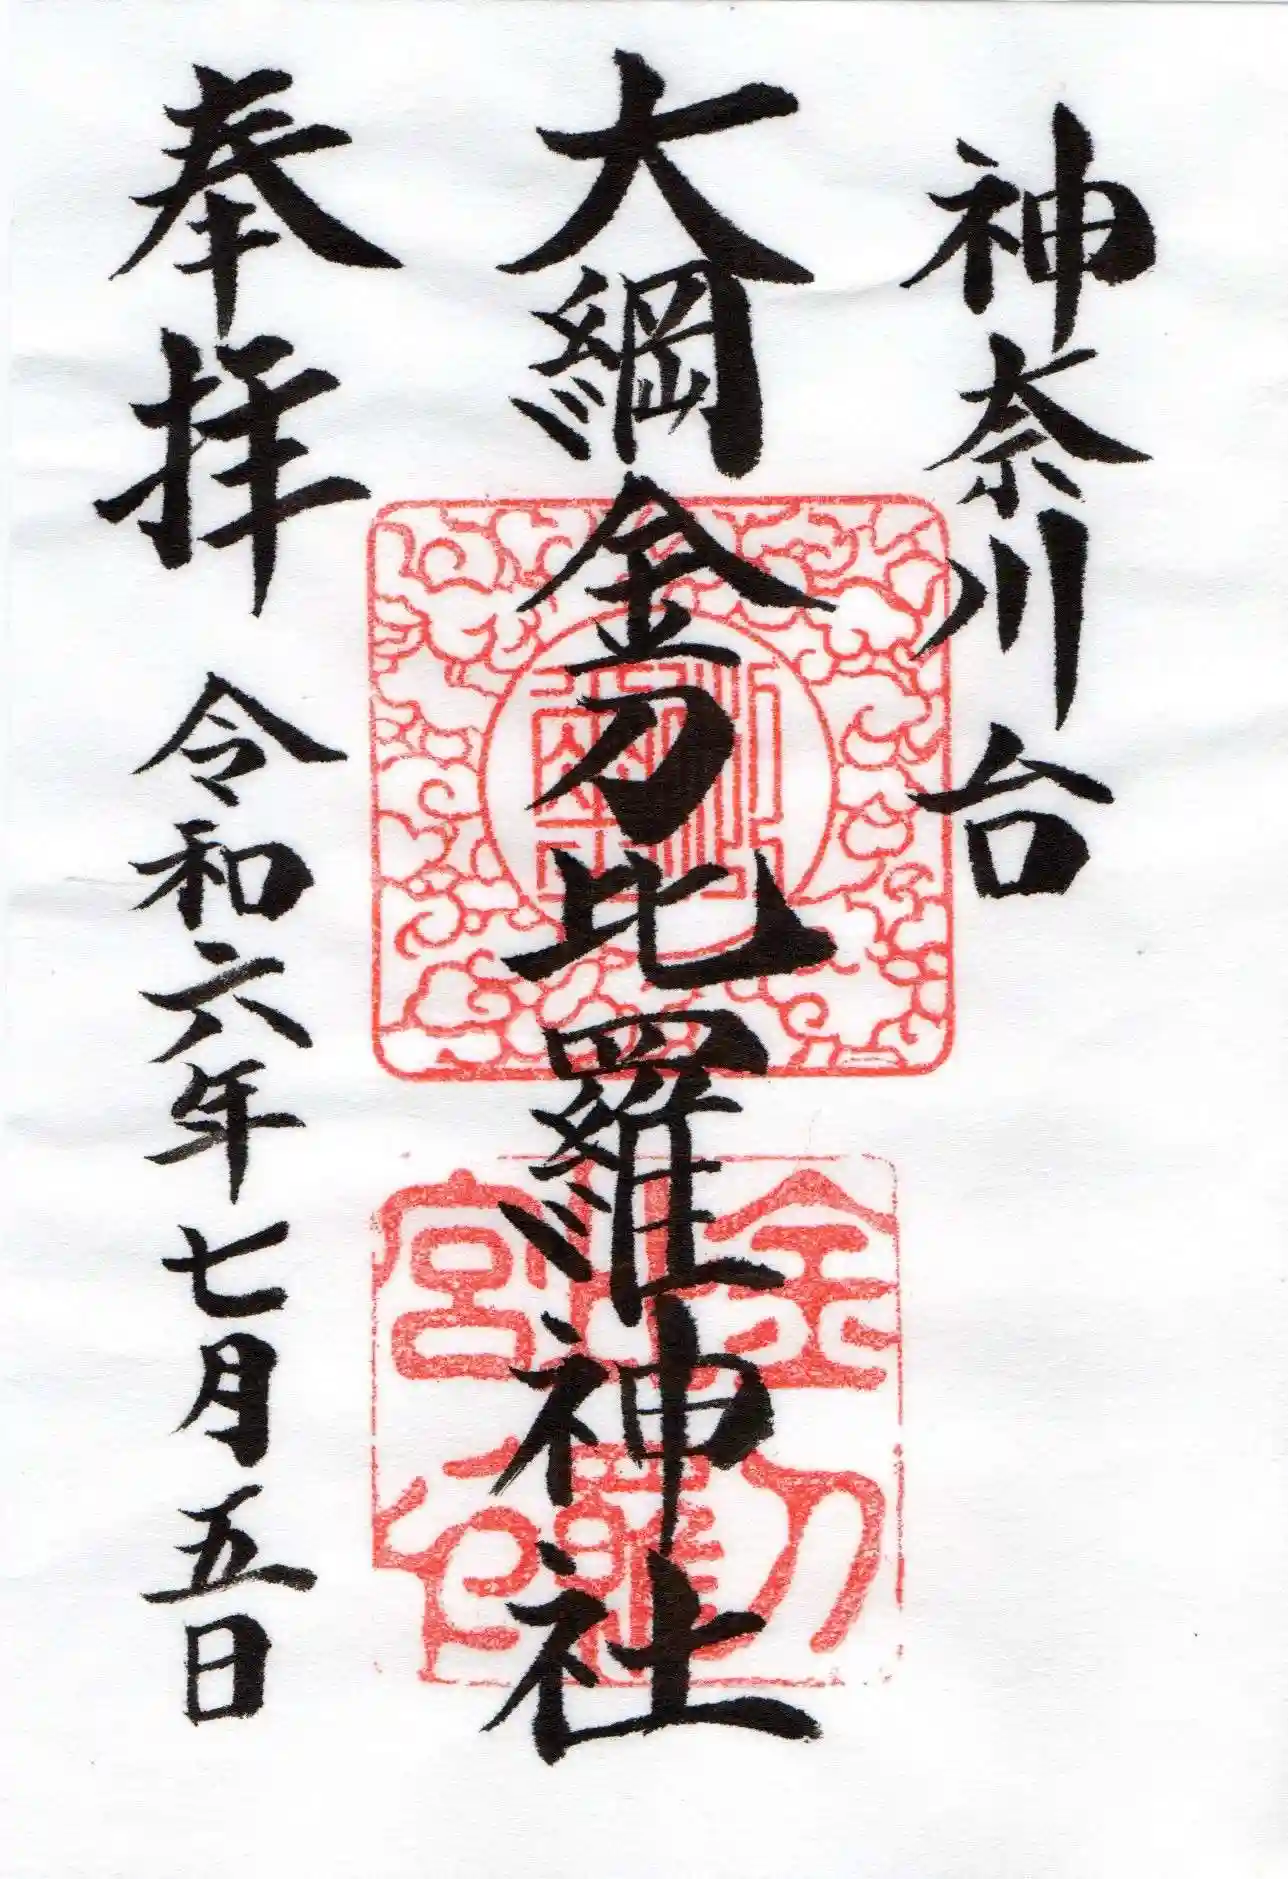 神奈川台
大綱金刀比羅神社
奉拝 令和六年七月五日